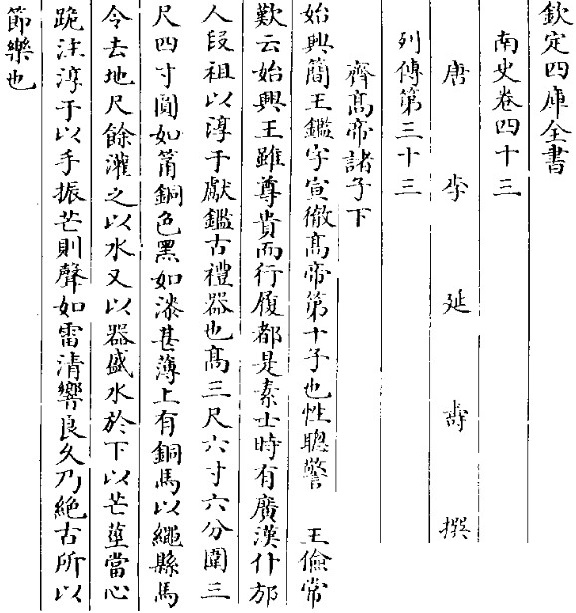 欽定四庫全書
南史卷四十三
唐李延壽撰
列傳第三十三
齊髙帝諸子下
始興簡王鑑字宣徹髙帝第十子也性聰警 王儉常
歎云始興王雖尊貴而行履都是素士時有廣漢什邡
人叚祖以淳于獻鑑古禮器也髙三尺六寸六分圍三
尺四寸圓如筩銅色黑如漆甚薄上有銅馬以繩縣馬
令去地尺餘灌之以水又以器盛水於下以芒莖當心
跪注淳于以手振芒則聲如雷清響良久乃絶古所以
節樂也